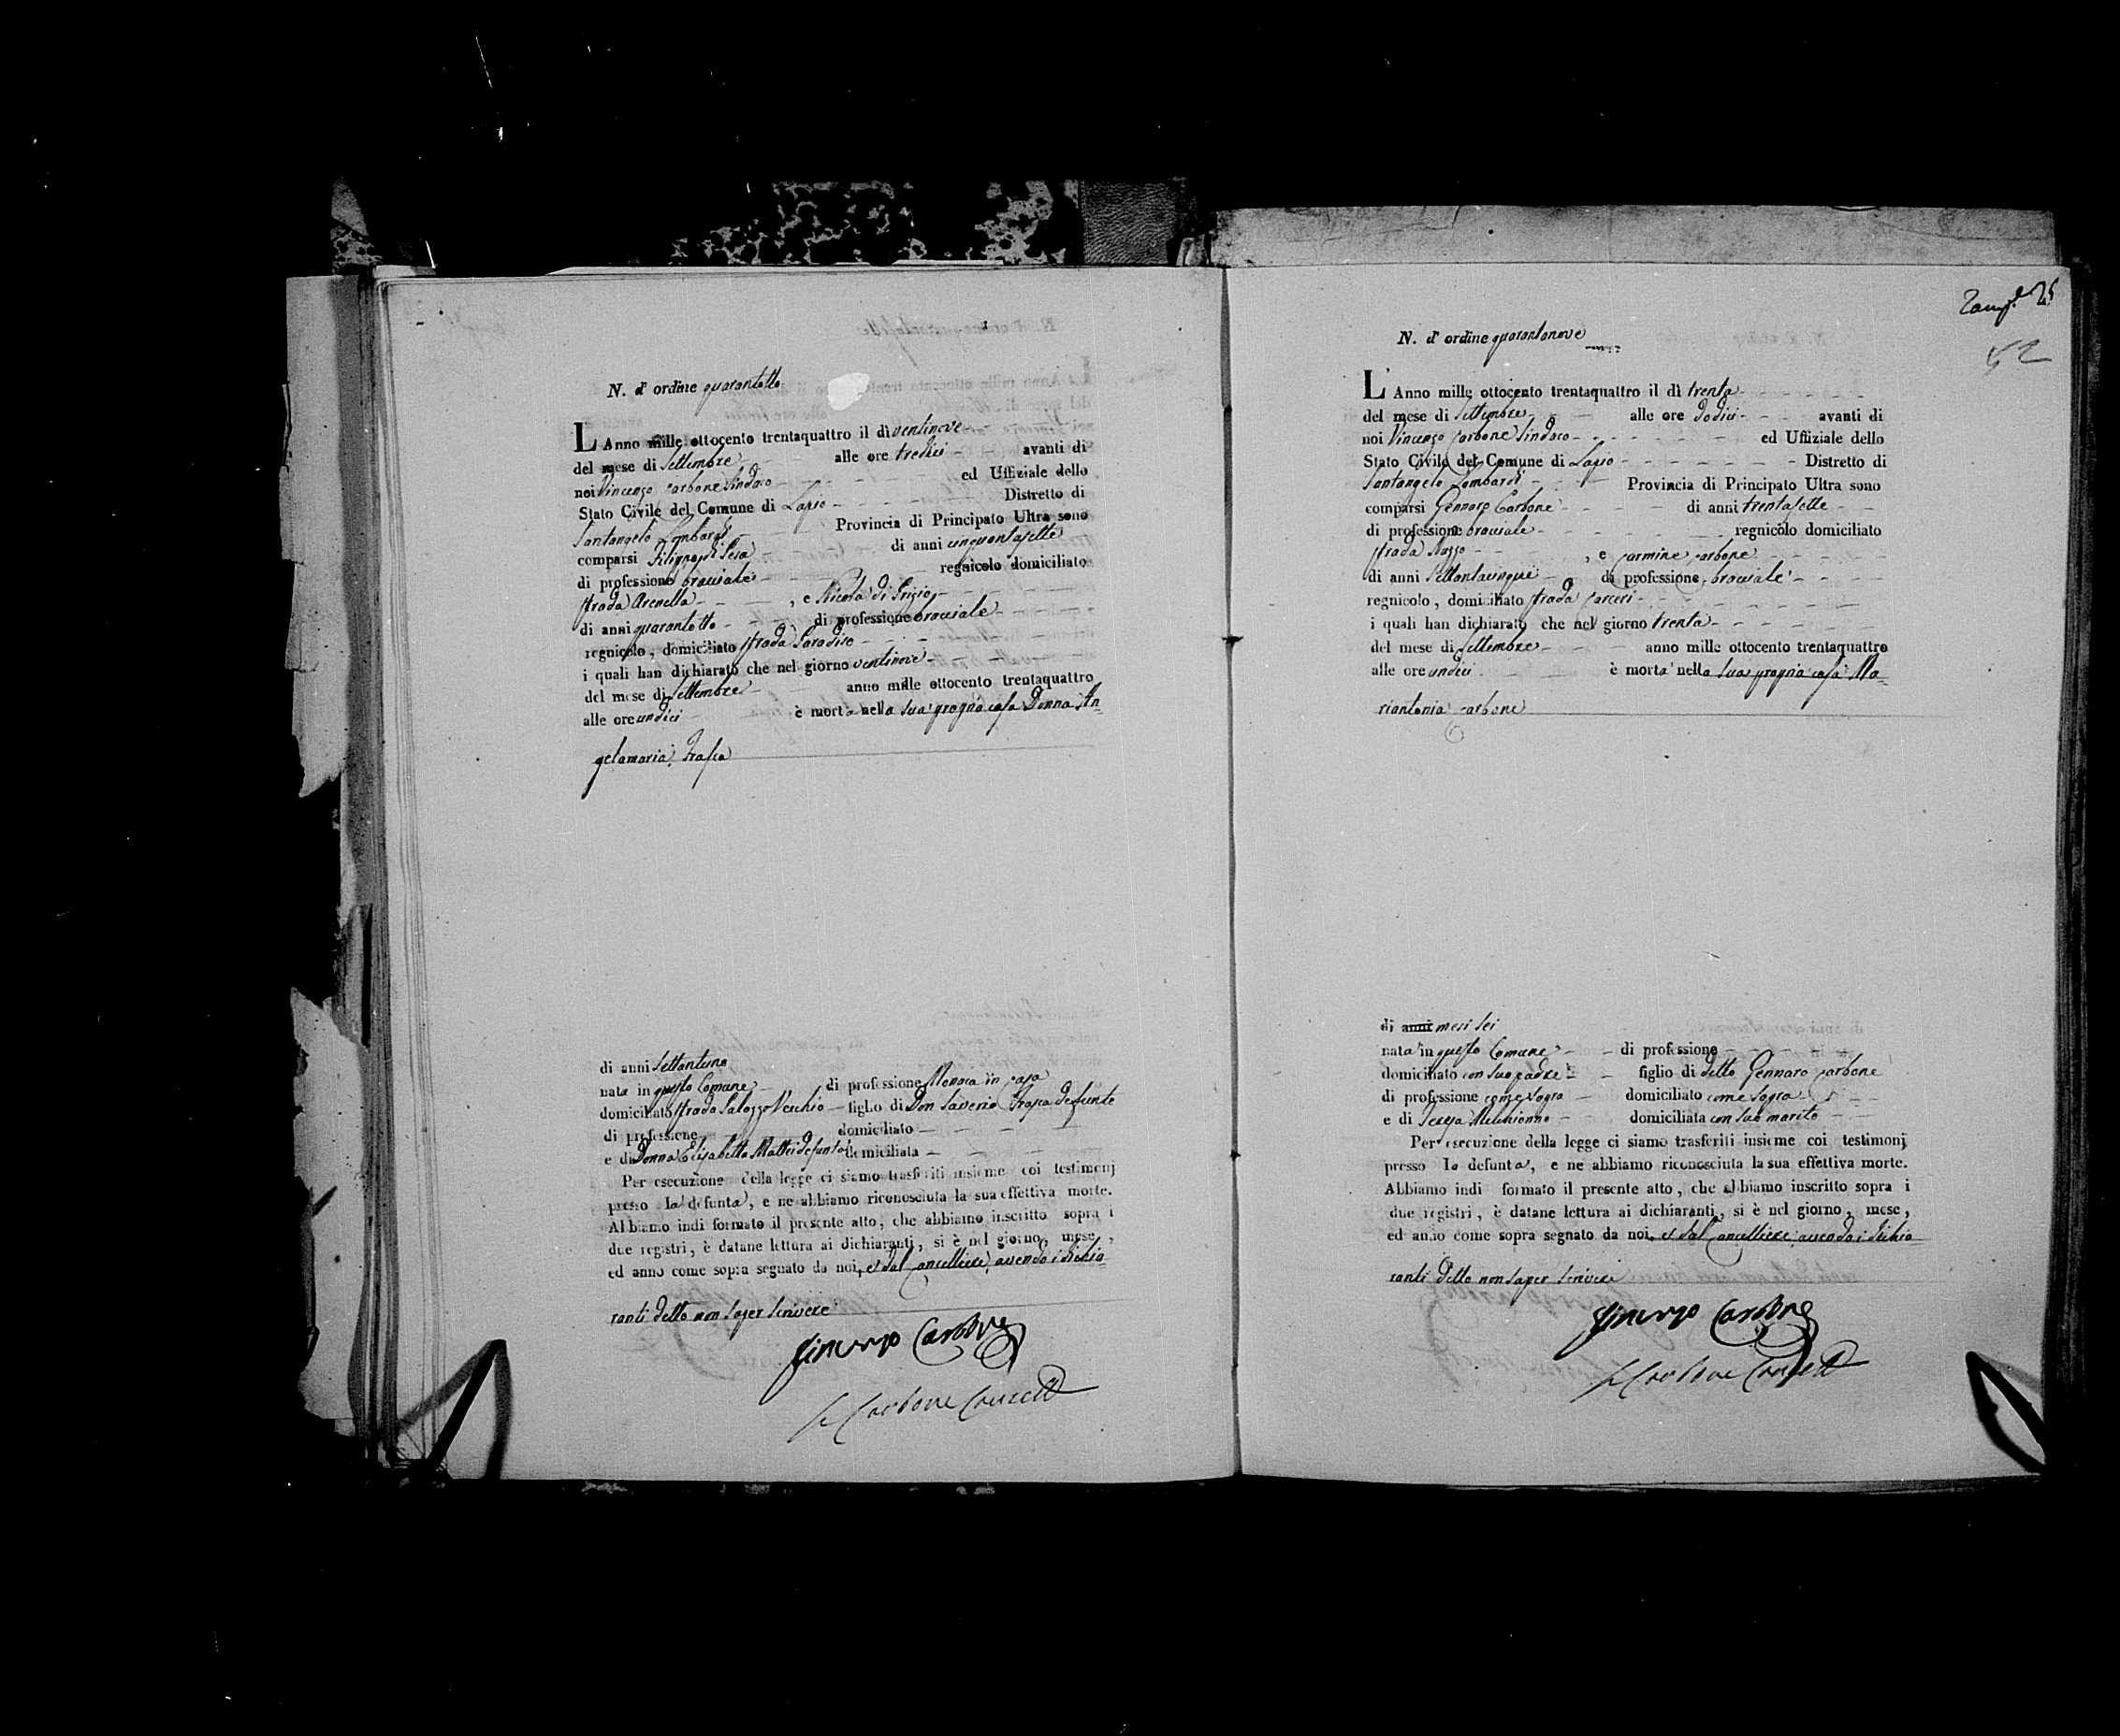 N. d'ordine quarantotto
L'Anno mille ottocento trentaquattro il dì ventinove
del mese di Settembre alle ore tredici avanti di
noi Vincenzo Carbone Sindaco ed Uffiziale dello
Stato Civile del Comune di Lapio Distretto di
Santangelo Lombardi Provincia di Principato Ultra sono
comparsi di anni cinquantasette
di professione bracciale regnicolo domiciliato
strada Arenella , e Nicola di
di anni quarantotto di professione bracciale
regnicolo, domiciliato strada Paradiso
i quali han dichiarato che nel giorno ventinove
del mese di Settembre anno mille ottocento trentaquattro
alle ore undici è morta nella sua propria casa Donna An=
gelamaria Frasca
di anni Settantuno
nata in questo Comune di professione Monaca in casa
domiciliato strada Palazzo Vecchio figlio di Don Saverio Frasca defunto
di professione domiciliato
e di Donna Elisabetta Mattei defunta domiciliata
Per esecuzione della legge ci siamo trasferiti insieme coi testimonj
presso la defunta, e ne abbiamo riconosciuta la sua effettiva morte.
Abbiamo indi formato il presente atto, che abbiamo inscritto sopra i
due registri, è datane lettura ai dichiaranti, si è nel giorno, mese,
ed anno come sopra segnato da noi, e dal Cancelliere, avendo i dichia=
ranti detto non saper scrivere
Vincenzo Carbone
Carbone Cancell
52
N. d'ordine quarantanove
L'Anno mille ottocento trentaquattro il dì trenta
del mese di Settembre alle ore dodici avanti di
noi Vincenzo Carbone Sindaco ed Uffiziale dello
Stato Civile del Comune di Lapio Distretto di
Santangelo Lombardi Provincia di Principato Ultra sono
comparsi Gennaro Carbone di anni trentasette
di professione bracciale regnicolo domiciliato
strada , e Carmine Carbone
di anni Settantacinque di professione bracciale
regnicolo, domiciliato strada Carceri
i quali han dichiarato che nel giorno trenta
del mese di Settembre anno mille ottocento trentaquattro
alle ore undici è morta nella sua propria casa Ma=
riantonia Carbone
di anni mesi sei
nata in questo Comune di professione
domiciliato con suo padre figlio di detto Gennaro Carbone
di professione come sopra domiciliato come sopra
e di Teresa domiciliata con suo marito
Per esecuzione della legge ci siamo trasferiti insieme coi testimonj
presso la defunta, e ne abbiamo riconosciuta la sua effettiva morte.
Abbiamo indi formato il presente atto, che abbiamo inscritto sopra i
due registri, è datane lettura ai dichiaranti, si è nel giorno, mese,
ed anno come sopra segnato da noi, e dal Cancelliere, avendo i dichia=
ranti detto non saper scrivere
Vincenzo Carbone
Carbone Cancell